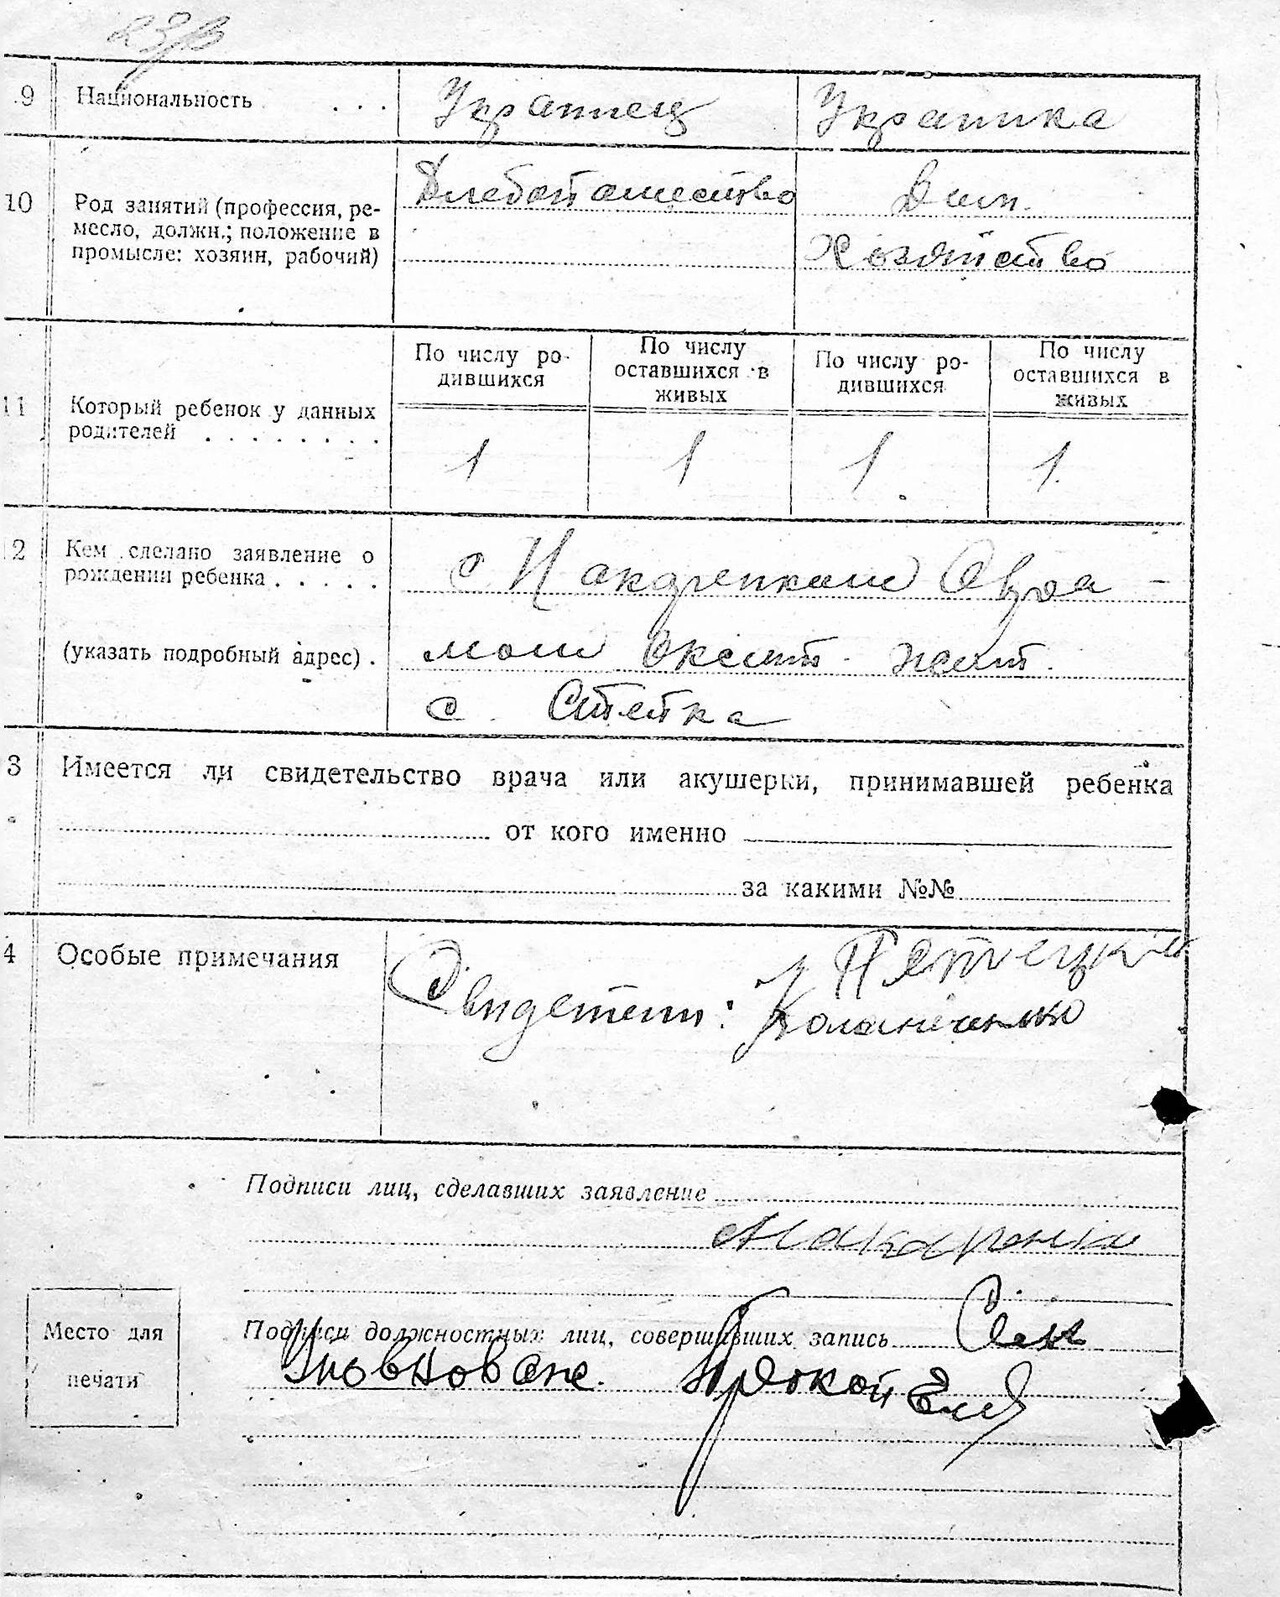 9 Национальность . . . Украинец Украинка
10 Род занятий (профессия, ре-
месло, должн.; положение в
промысле: хозяин, рабочий)
Хлебопашество Дом.
Хозяйство
11 Который ребенок у данных
родителей . . . . . . . .
По числу ро-
дившихся
По числу
оставшихся в
живых
По числу ро-
дившихся
По числу
оставшихся в
живых
1 1 1 1
2 Кем сделано заявление о
рождении ребенка . . . . .
(указать подробный адрес) .
с
с. Степка
3 Имеется ли свидетельство врача или акушерки, принимавшей ребенка
от кого именно
за какими №№
4 Особые примечания
Свидетели:
Подписи лиц, сделавших заявление
Макаренко
Подписи должностных лиц, совершивших запись
Место для
печати